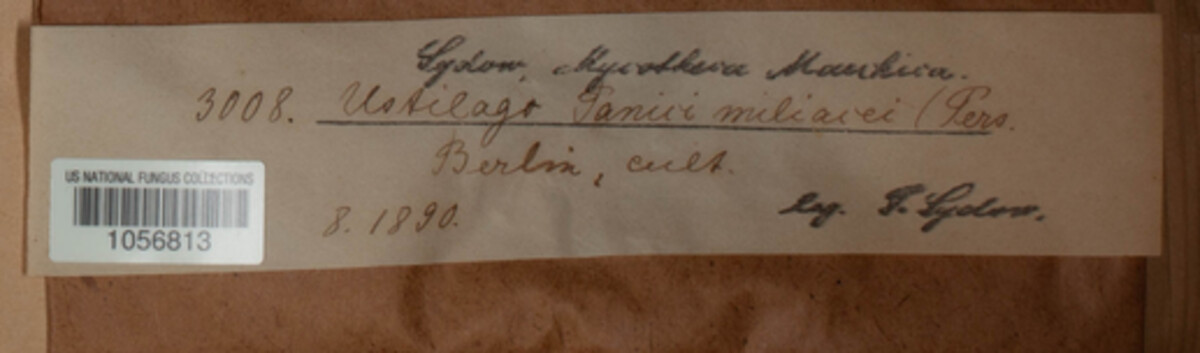 Sydow, Mycotheca Marchica.
3008. Ustilago Panici miliacei (Pers.
Berlin, cult.
8. 1890.
leg. P. Sydow.
US NATIONAL FUNGUS COLLECTIONS
1056813